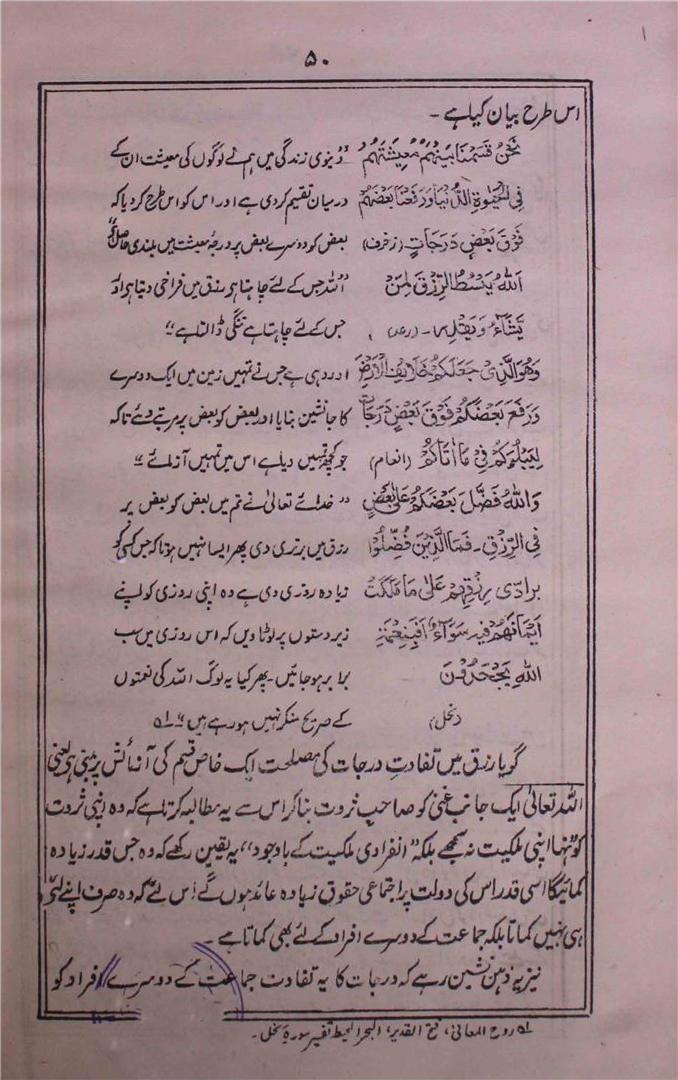 ۵۰
اس طرح بیان کیا ہے ۔
نَحْنُ قَسَمْنَا بَيْنَهُمْ مَعِيْشَتَهُمْ دنیوی زندگی میں ہم نے لوگوں کی معیشت ان کے
فِي الْحَيٰوةِ الدُّنْيَا وَرَفَعْنَا بَعْضَهُمْ درمیان تقیم کر دی ہے اور اس کو اس طرح کر دیا کہ
فَوْقَ بَعْضٍ دَرَجَاتٍ (زخرف) بعض کو دوسرے بعض پر درجۂ معیشت میں بلندی حاصل
اَللّٰهُ يَبْسُطُ الرِّزْقَ لِمَنْ "اللہ جس کے لئے چاہتا ہو رزق میں فراخی دیتا ہو اور
يَّشَآءُ وَيَقْدِرُ ۔ (رعد) جس کے لئے چاہتا ہے تنگی ڈالتا ہے"
وَهُوَ الَّذِيْ جَعَلَكُمْ خَلَائِفَ الْاَرْضِ اور وہی ہے جس نے تمہیں زمین میں ایک دوسرے
وَرَفَعَ بَعْضَكُمْ فَوْقَ بَعْضٍ دَرَجَاتٍ کا جانشین بنایا اور بعض کو بعض پر مرتبے دئے تاکہ
لِيَبْلُوَكُمْ فِيْ مَا اٰتَاكُمْ (انعام) جو کچھ تمہیں دیا ہے اس میں تمہیں آزمائے"
وَاللّٰهُ فَضَّلَ بَعْضَكُمْ عَلٰى بَعْضٍ "خدائے تعالیٰ نے تم میں بعض کو بعض پر
فِي الرِّزْقِ ۔ فَمَا الَّذِيْنَ فُضِّلُوْا رزق میں برتری دی پھر ایسا نہیں ہوتا کہ جس کسی کو
بِرَادِّيْ رِزْقِهِمْ عَلٰى مَا مَلَكَتْ زیادہ روزی دی ہے وہ اپنی روزی کو اپنے
اَيْمَانُهُمْ فَهُمْ فِيْهِ سَوَآءٌ اَفَبِنِعْمَةِ زیردستوں پر لوٹا دیں کہ اس روزی میں سب
اللّٰهِ يَجْحَدُوْنَ برابر ہو جائیں ۔ پھر کیا یہ لوگ اللہ کی نعمتوں
(نحل) کے صریح منکر نہیں ہو رہے ہیں" ۱ھ
گویا رزق میں تفاوتِ درجات کی مصلحت ایک خاص قسم کی آزمائش پر مبنی ہو یعنی
اللہ تعالیٰ ایک جانب غنی کو صاحبِ ثروت بنا کر اس سے یہ مطالبہ کرتا ہے کہ وہ اپنی ثروت
کو تنہا اپنی ملکیت نہ سمجھے بلکہ "انفرادی ملکیت کے باوجود" یہ یقین رکھے کہ وہ جس قدر زیادہ
کمائیگا اسی قدر اس کی دولت پر اجتماعی حقوق زیادہ عائد ہوں گے اس لئے کہ وہ صرف اپنے لئے
ہی نہیں کماتا بلکہ جماعت کے دوسرے افراد کے لئے بھی کماتا ہے ۔
نیز یہ ذہن نشین رہے کہ درجات کا یہ تفاوت جماعت کے دوسرے افراد کو
۱ھ روح المعانی، فتح القدیر، البحر المحیط تفسیر سورۃ نحل ۔